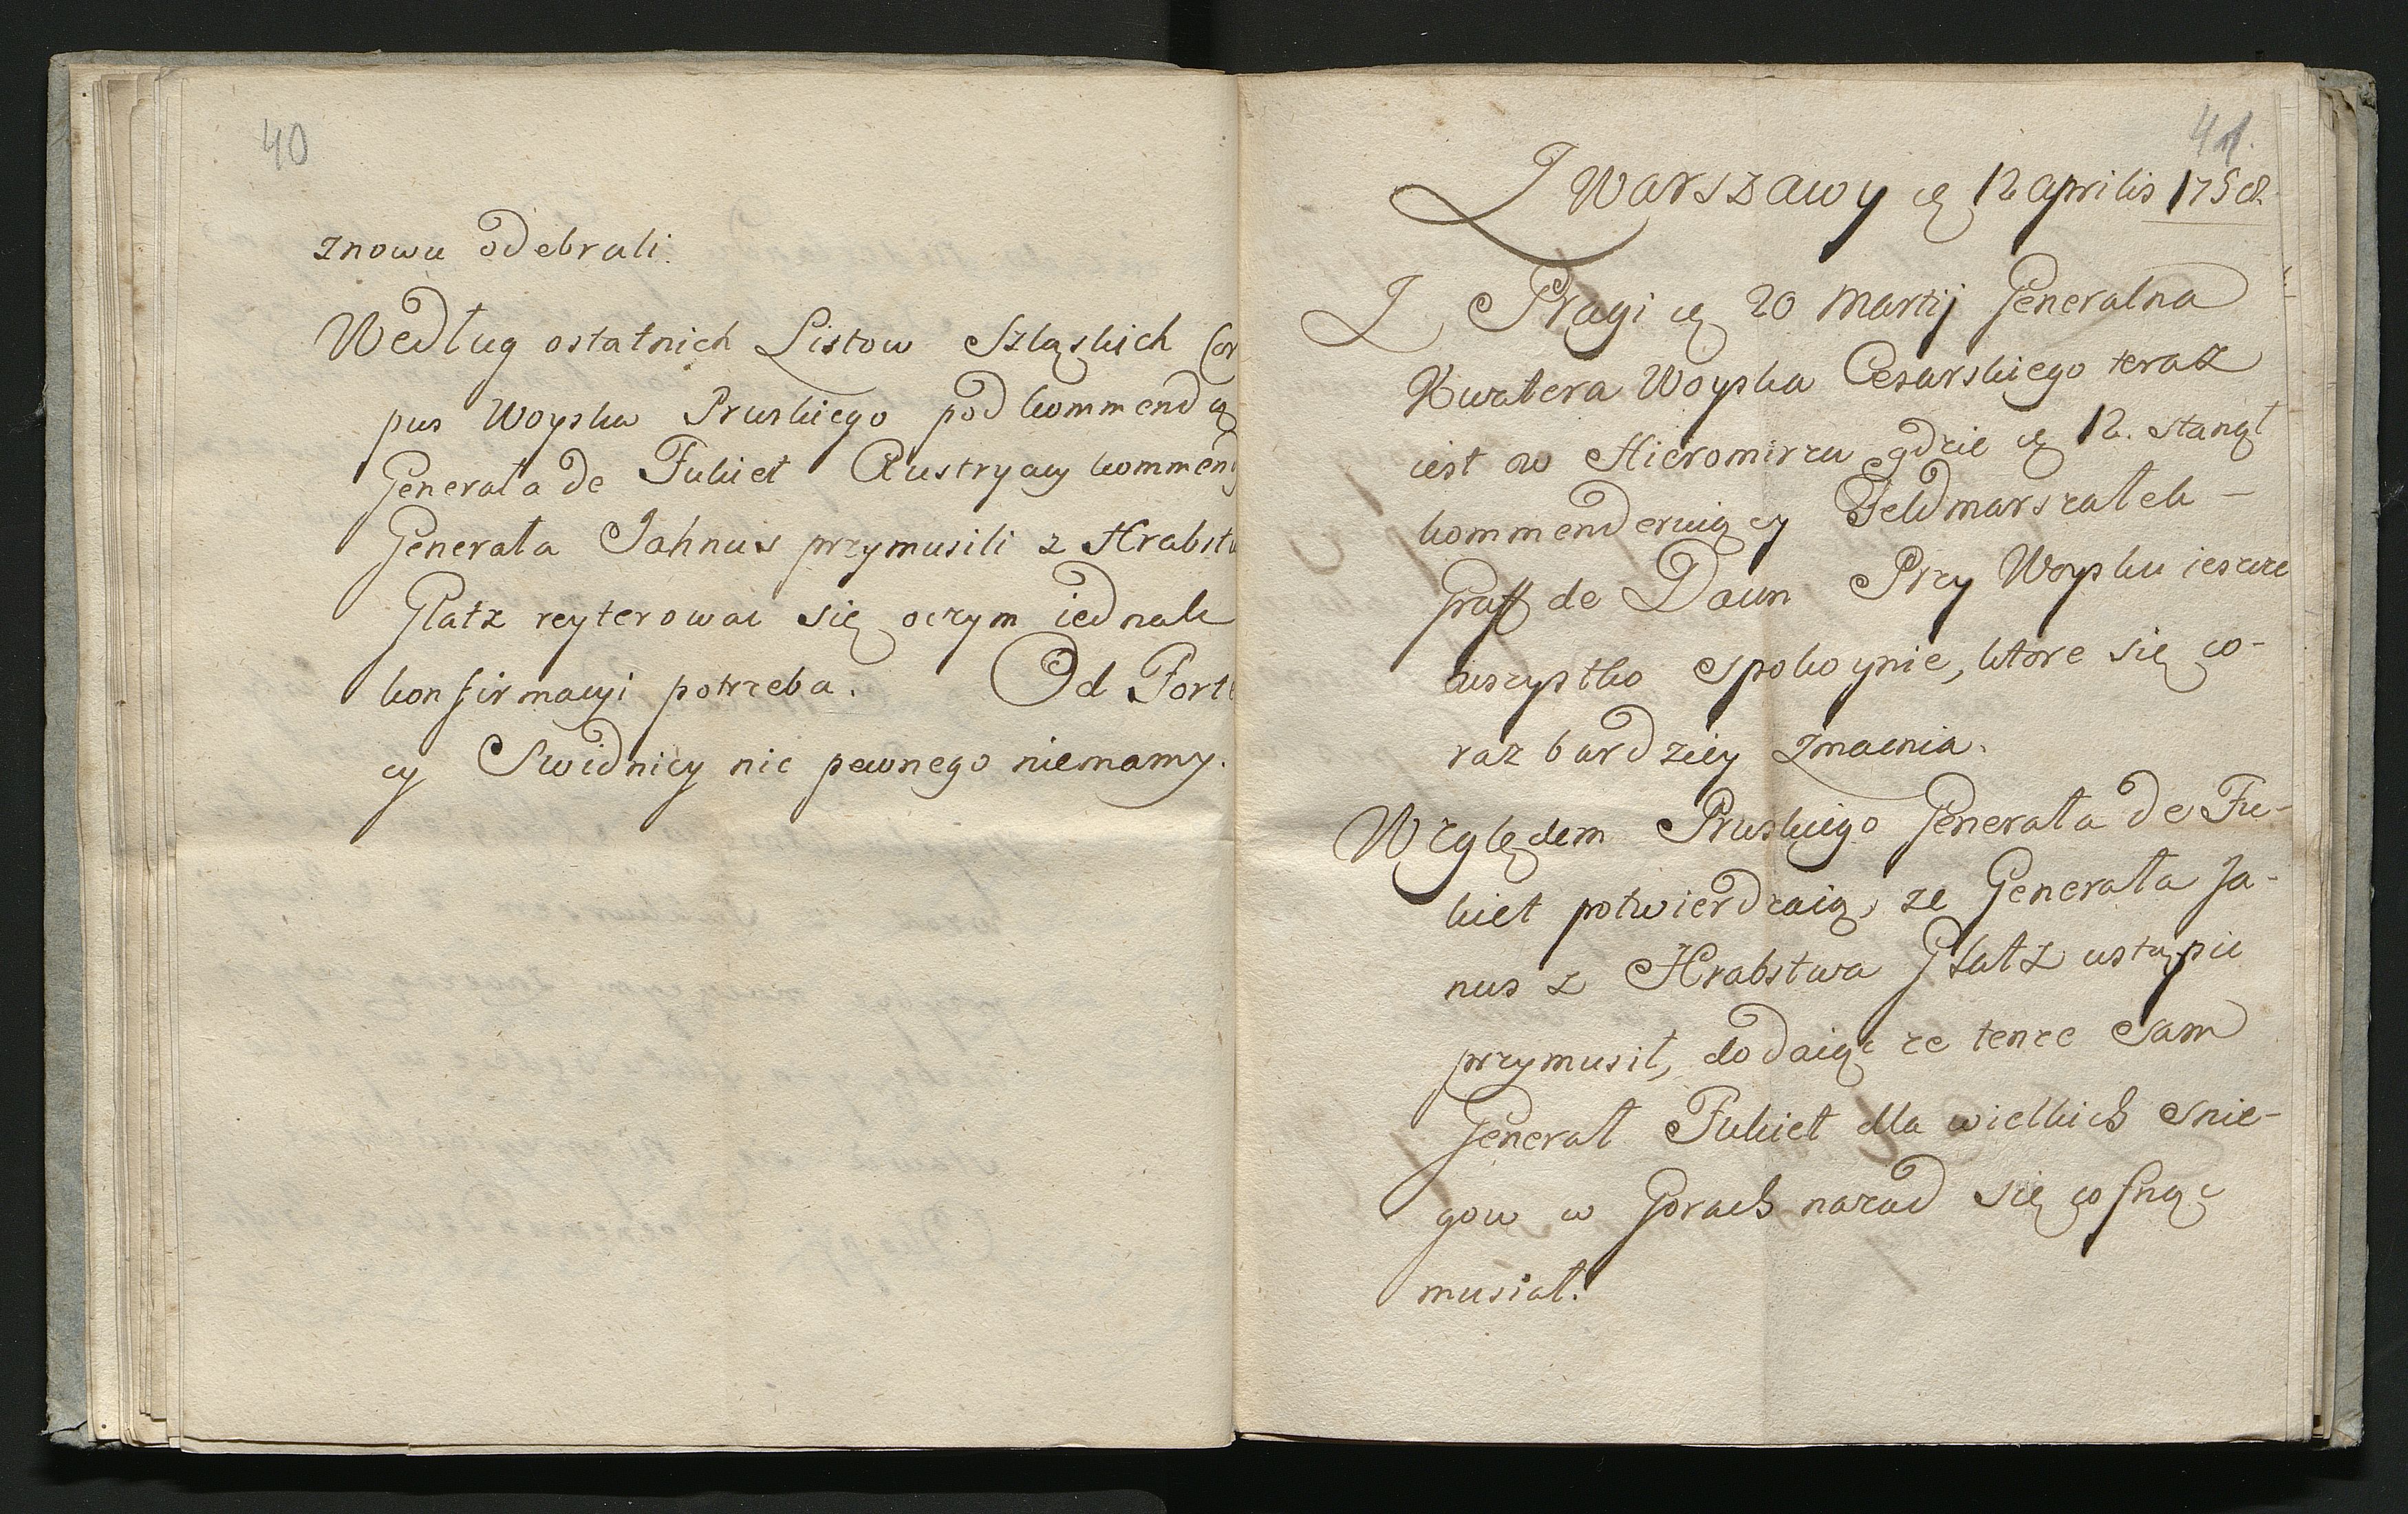 40
znowu odebrali.
Według ostatnich Listow Szląskich Cor
pus Woyska Pruskiego pod kommendą
Generała de Fukiet Austryacy kommen
Generała Jahnus przymusili z Hrabstw
Glatz reyterowac się oczym iednak
konfirmacyi potrzeba. Od Forte
cy Swidnicy nic pewnego niemamy.
41.
Z Warszawy 12 aprilis 1758.
Z Pragi 20 Martij Generalna
Kwatera Woyska Cesarskiego teraz
iest w Hieromirzu gdzie 12. stanął
kommenderuiący Feldmarszałek –
Graff de Daun Przy Woysku ieszcze
wszystko spokoynie, ktore się co-
raz bardziey zmacnia.
Względem Pruskiego Generała de Fu-
kiet potwierdzaią, ze Generała Ja-
nus z Hrabstwa Glatz ustąpic
przymusił, dodaiąc ze tenze sam
Generał Fukiet dla wielkich snie-
gow w Gorach nazad się cofnąc
musiał.